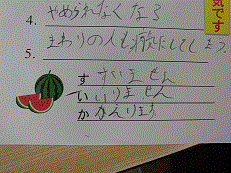 気です
4. やめられなくなる
5. まわりの人も病気にしてしまう
す すいません
い いりません
か かんりょう